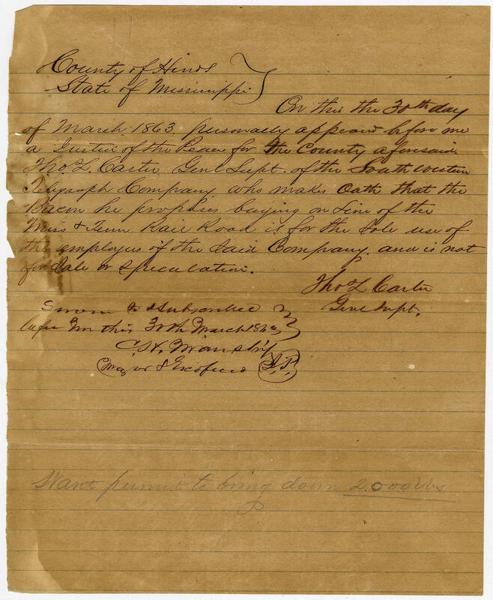 County of Hinds
State of Mississippi
On this the 30th day
of March 1863 personally appeard before me
a Justice of the Peace for the County aforesaid
Thos. L. Carter Genl Supt. of the South Western
Telegraph Company who makes Oath that the
Bacon he prophies buying on line of the
Miss & Tenn Rail Road is for the Sole use of
the employees of the Said Company and is not
for Sale or Speculation.
Thos L Carter
Genl Supt.
Sworn to & Subscribed
before me this 30th March 1863
C. H. Manship
Mayor & Exofficio J.P.
Want permit to bring down 2.000 lbs